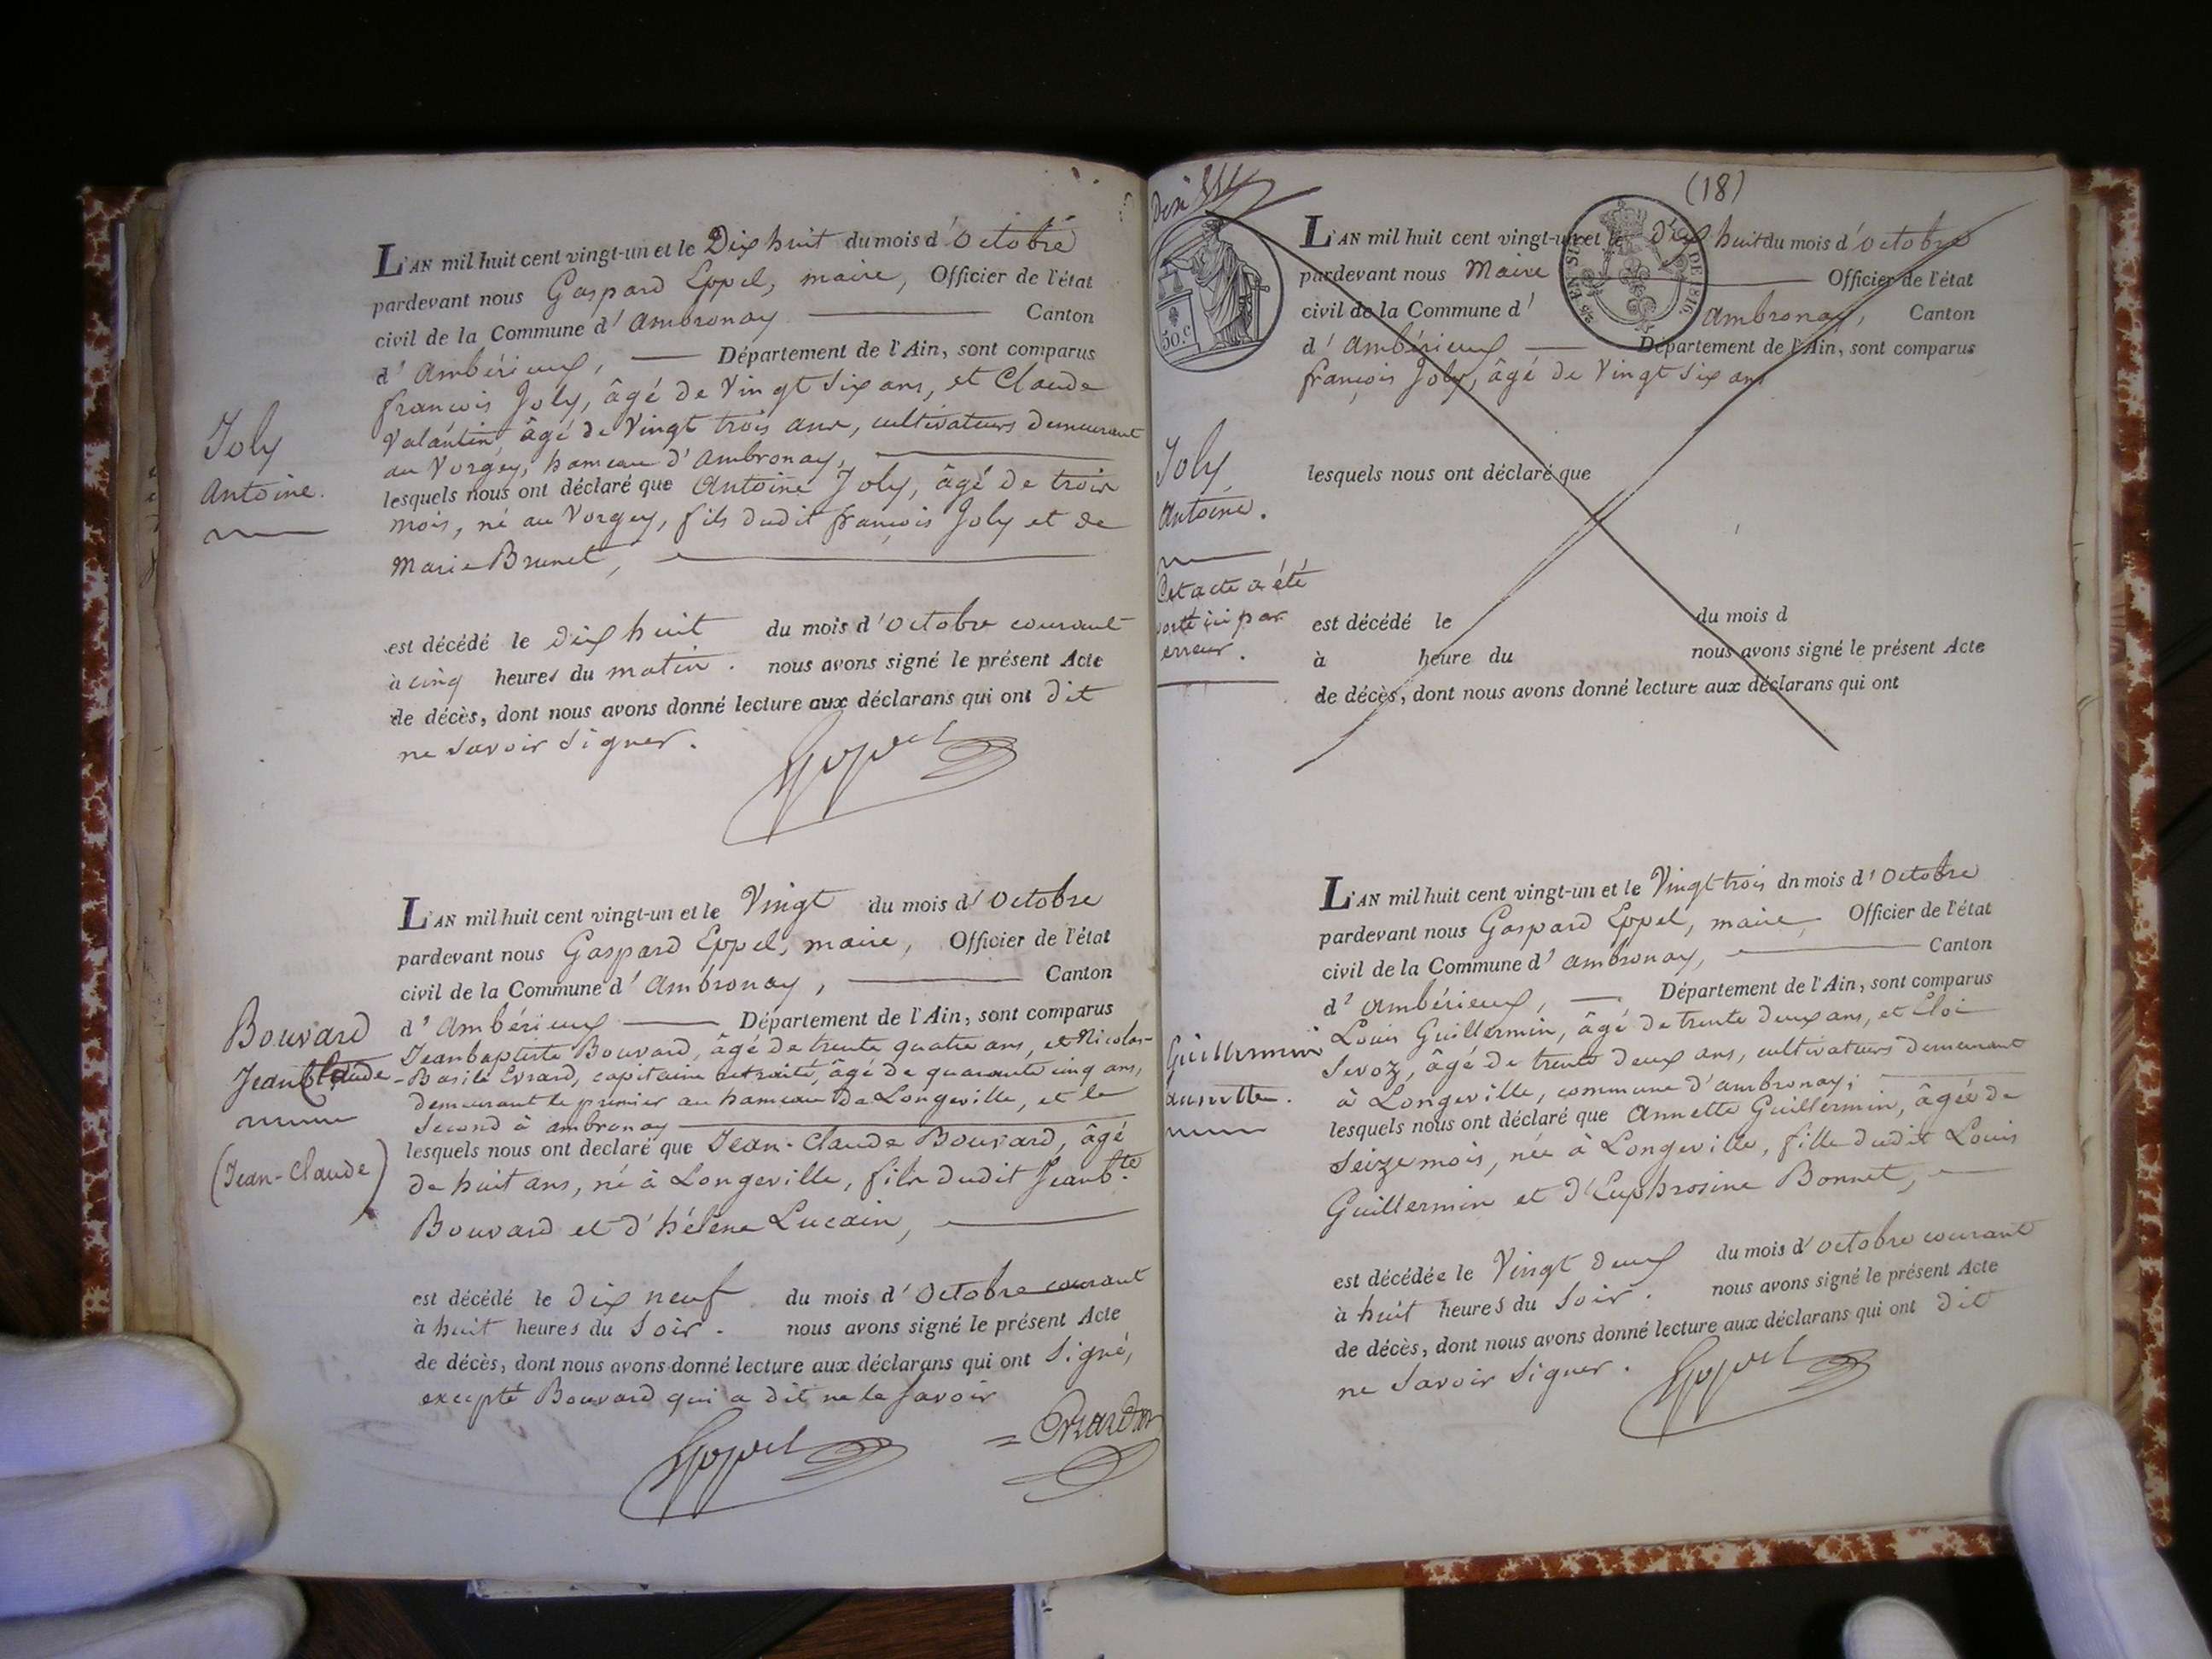 L'AN mil huit cent vingt-un et le Dix huit du mois d'octobre
pardevant nous Gaspard Eppel, maire, Officier de l'état
civil de la Commune d'ambronay Canton
d'ambérieux, Département de l'Ain, sont comparus
françois Joly, âgé de Vingt six ans, et Claude
Valantin, âgé de Vingt trois ans, cultivateurs demeurant
au Vorgey, hameau d'ambronay,
lesquels nous ont déclaré que Antoine Joly, âgé de trois
mois, né au Vorgey, fils dudit françois Joly et de
Marie Brunet,
est décédé le dix huit du mois d'octobre courant
à cinq heures du matin. nous avons signé le présent Acte
de décès, dont nous avons donné lecture aux déclarans qui ont dit
ne savoir signer.
Eppel
Joly
Antoine.
L'AN mil huit cent vingt-un et le Vingt du mois d'octobre
pardevant nous Gaspard Eppel, maire, Officier de l'état
civil de la Commune d'ambronay, Canton
d'ambérieux Département de l'Ain, sont comparus
Jeanbaptiste Bouvard, âgé de trente quatre ans, et Nicolas-
-Basile Evrard, capitaine retraité, âgé de quarante cinq ans,
demeurant le premier au hameau de Longeville, et le
second à ambronay
lesquels nous ont declaré que Jean-Claude Bouvard, âgé
de huit ans, né à Longeville, fils dudit Jeanb.te
Bouvard et d'hélène Lucain,
est décédé le dix neuf du mois d'octobre courant
à huit heures du soir. nous avons signé le présent Acte
de décès, dont nous avons donné lecture aux déclarans qui ont signé,
excepté Bouvard qui a dit ne le savoir
Eppel
Bouvard
JeanClaude
(Jean-Claude)
(18)
50.c
DE 1816
L'AN mil huit cent vingt-un et le dix huit du mois d'octobre
pardevant nous Maire Officier de l'état
civil de la Commune d'ambronay, Canton
d'ambérieux Département de l'Ain, sont comparus
françois Joly, âgé de Vingt six ans
lesquels nous ont déclaré que
est décédé le du mois d
à heure du nous avons signé le présent Acte
de décès, dont nous avons donné lecture aux déclarans qui ont
Joly
Antoine.
Cet acte a été
porté ici par
erreur.
L'AN mil huit cent vingt-un et le Vingt trois dn mois d'octobre
pardevant nous Gaspard Eppel, maire, Officier de l'état
civil de la Commune d'ambronay, Canton
d'ambérieux, Département de l'Ain, sont comparus
Louis Guillermin, âgé de trente deux ans, et Eloi
Sevoz, âgé de trente deux ans, cultivateurs demeurant
à Longeville, commune d'ambronay;
lesquels nous ont déclaré que Annette Guillermin, âgée de
seize mois, née à Longeville, fille dudit Louis
Guillermin et d'Euphrosine Bonnet,
est décédée le Vingt deux du mois d'octobre courant
à huit heures du soir. nous avons signé le présent Acte
de décès, dont nous avons donné lecture aux déclarans qui ont dit
ne savoir signer.
Eppel
Guillermin
annette.